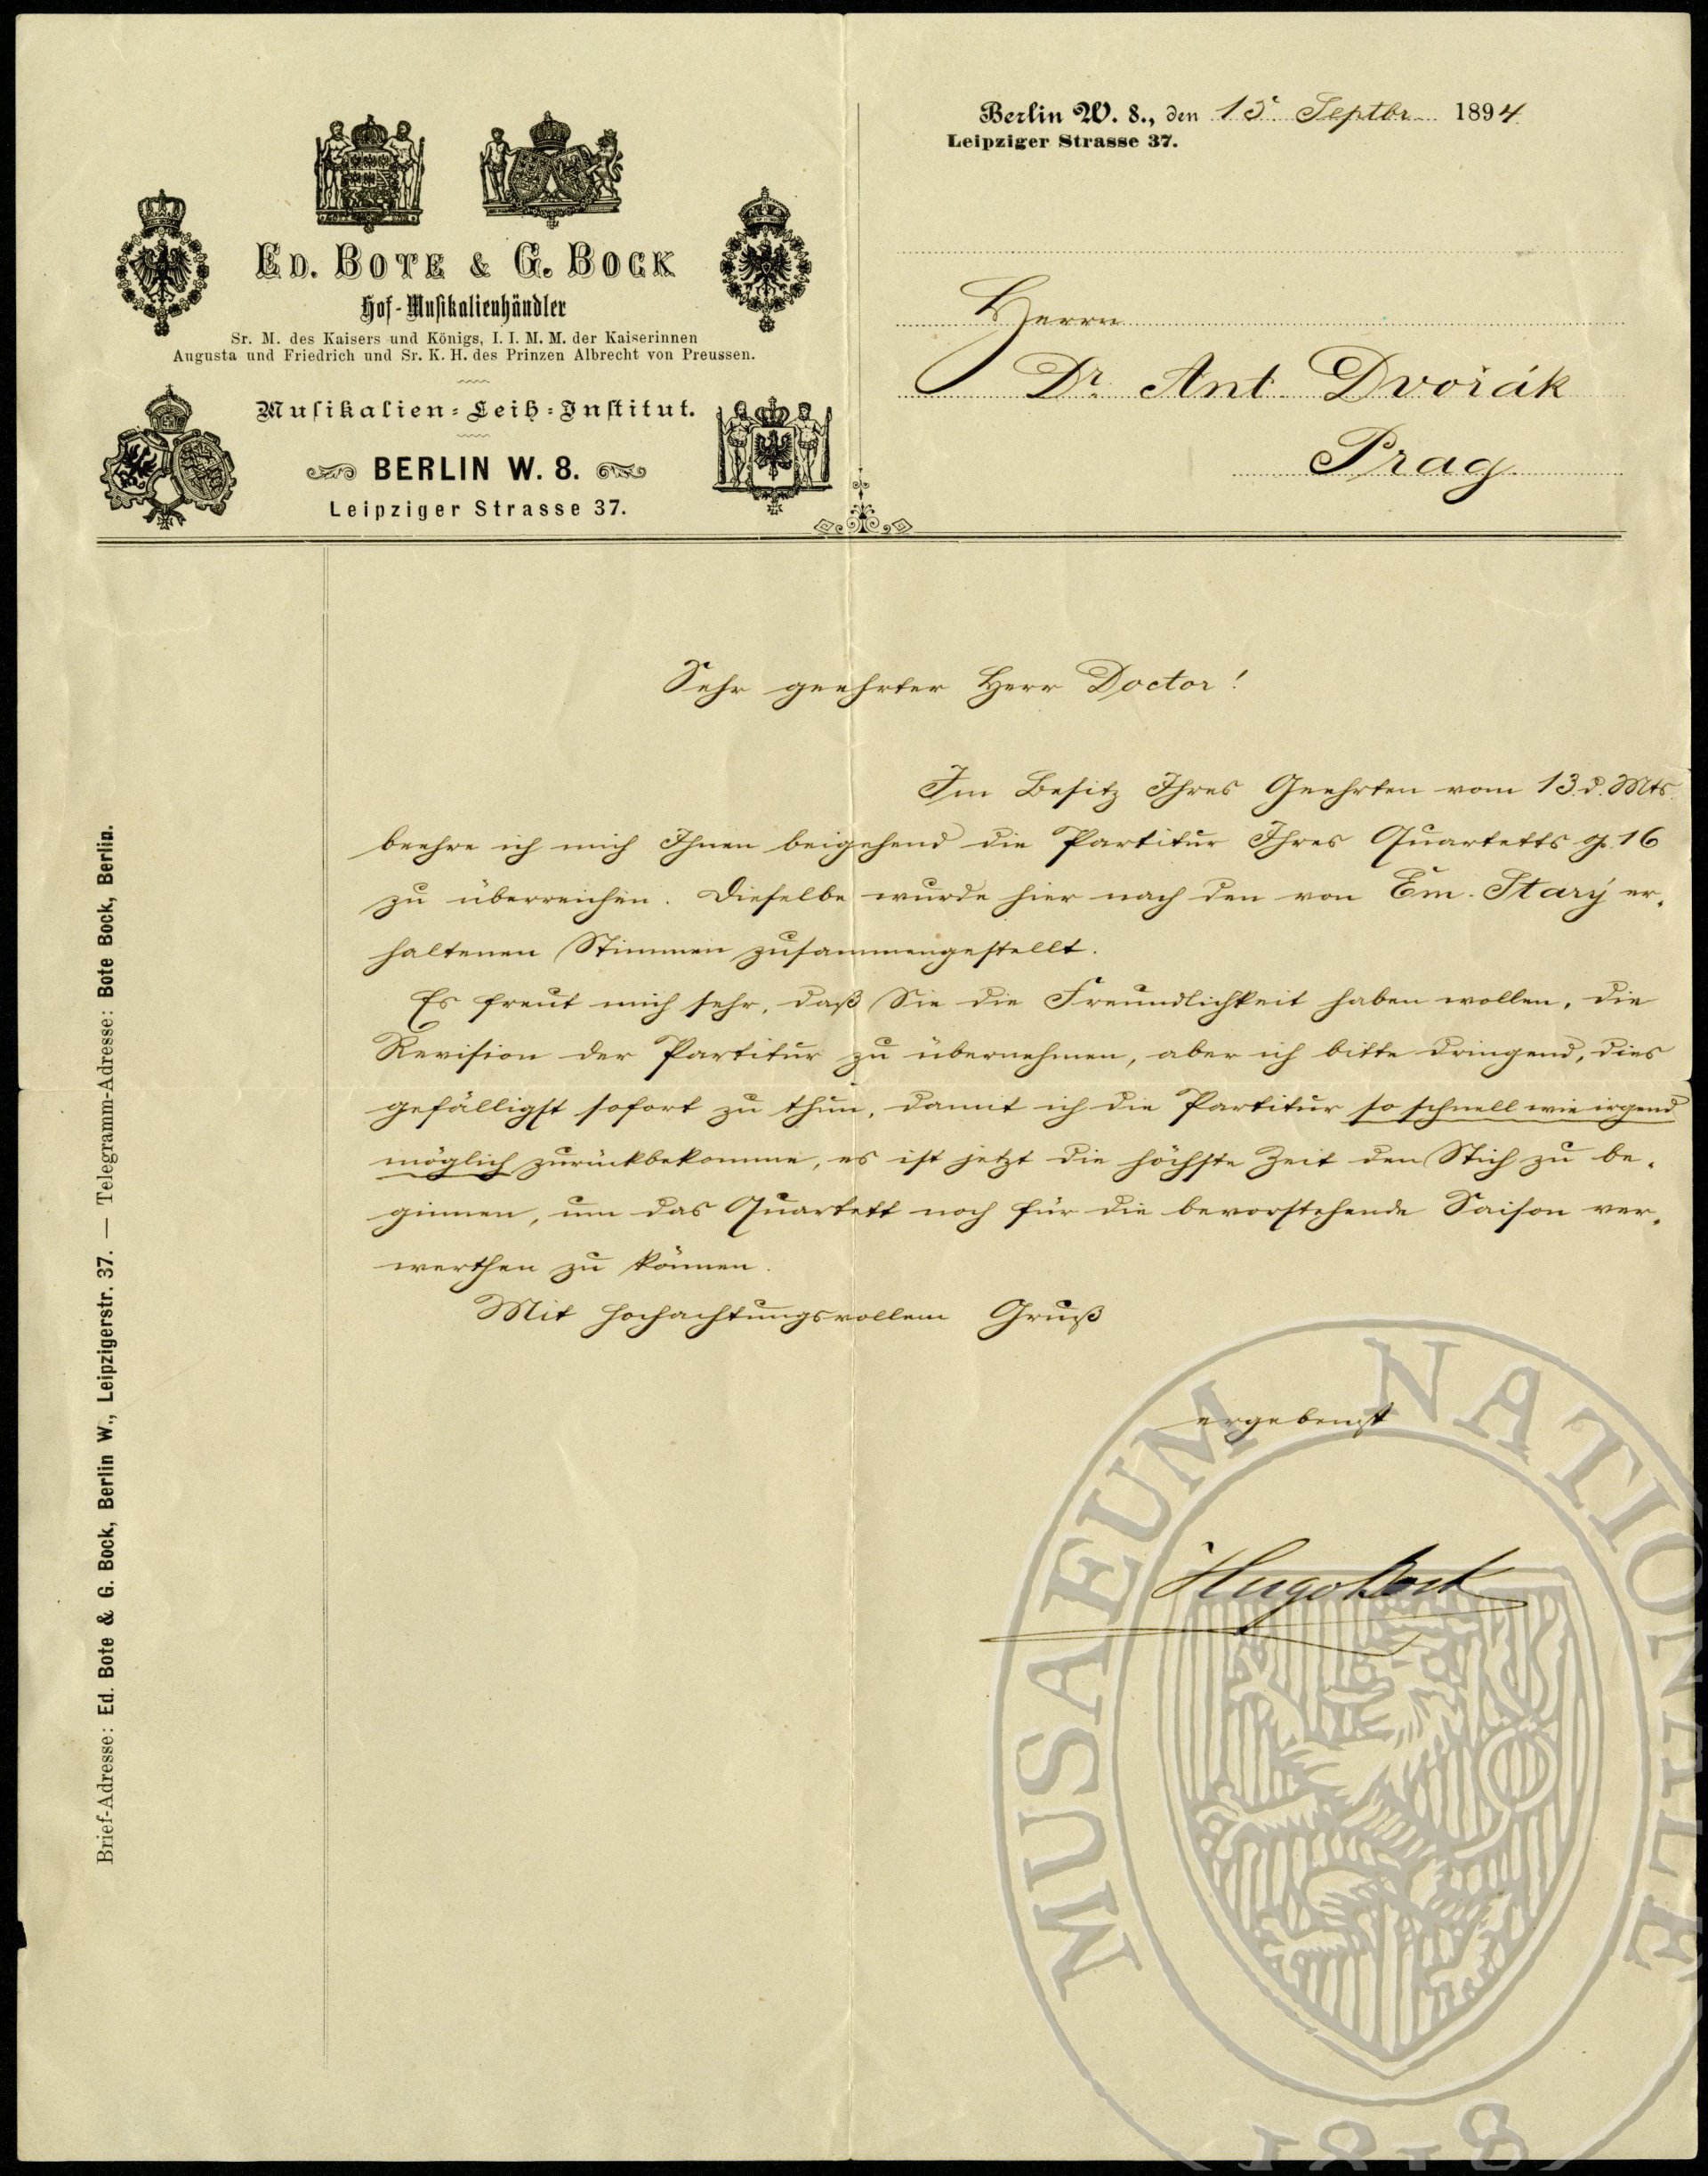 Berlin W. 8., den 15. Septbr. 1894
Leipziger Strasse 37.
ED. BOTE & G. BOCK
Hof-Musikalienhändler
Sr. M. des Kaisers und Königs, I. I. M. M. der Kaiserinnen
Augusta und Friedrich und Sr. K. H. des Prinzen Albrecht von Preussen.
Musikalien-Leih-Institut.
BERLIN W. 8.
Leipziger Strasse 37.
Herrn
Dr. Ant. Dvořák
Prag.
Sehr geehrter Herr Doctor!
Im Besitz Ihres Geehrten vom 13. d. Mts.
beehre ich mich Ihnen beigehend die Partitur Ihres Quartetts op. 16
zu überreichen. Dieselbe wurde hier nach den von Em. Starý er-
haltenen Stimmen zusammengestellt.
Es freut mich sehr, daß Sie die Freundlichkeit haben wollen, die
Revision der Partitur zu übernehmen, aber ich bitte dringend, dies
gefälligst sofort zu thun, damit ich die Partitur so schnell wie irgend
möglich zurückbekomme, es ist jetzt die höchste Zeit den Stich zu be-
ginnen, um das Quartett noch für die bevorstehende Saison ver-
werthen zu können.
Mit hochachtungsvollem Gruß
ergebenst
Hugo Bock
Brief-Adresse: Ed. Bote & G. Bock, Berlin W., Leipzigerstr. 37. — Telegramm-Adresse: Bote Bock, Berlin.
MUSAEUM NATIONALE
1818